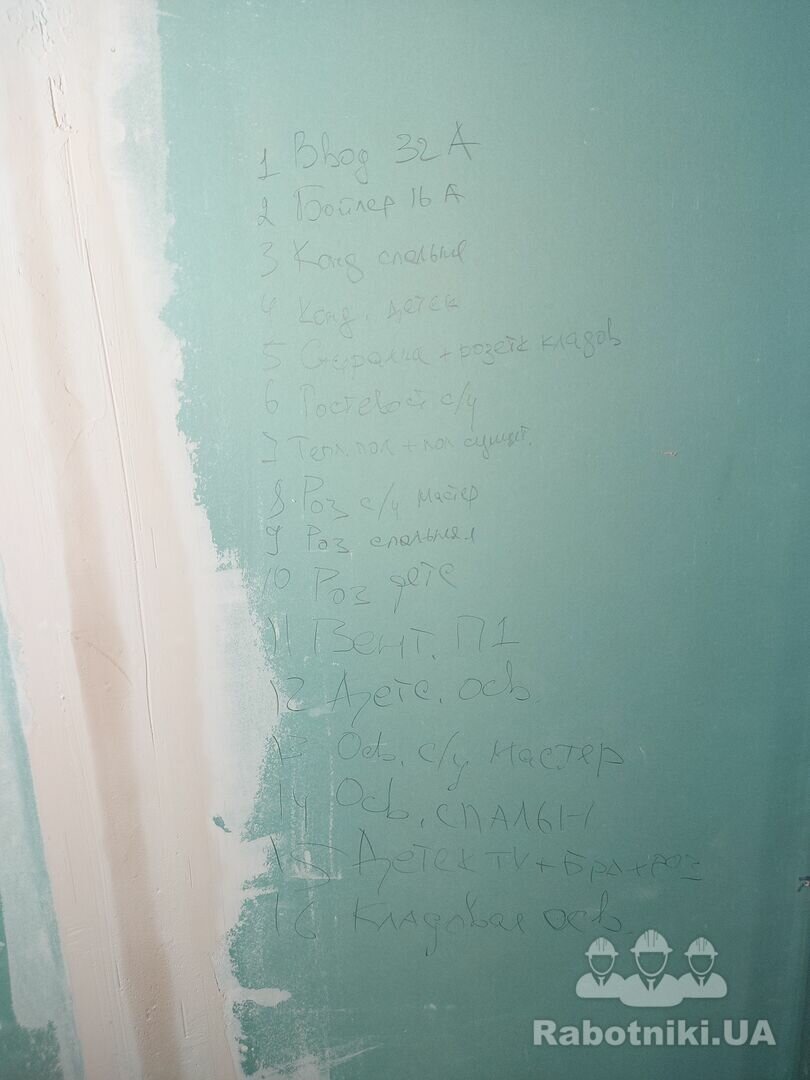 1 Ввод 32 А
2 Бойлер 16 А
3 Конд спальня
4 Конд. детск
5 Стиралка + розетк кладов
6 Гостевой с/у
7 Тепл. пол + пол сушит.
8 Роз с/у мастер
9 Роз спальня
10 Роз детс
11 Вент. П1
12 Детс. осв.
13 Осв. с/у мастер
14 Осв. спальн
15 Детск TV + Бра + роз
16 Кладовая осв.
Rabotniki.UA